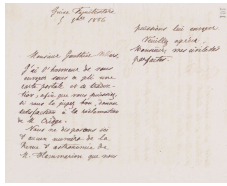 Monsieur Gauthier Villars,
J'ai l'honneur de vous
envoyer sous ce pli une
carte postale et sa traduc-
tion, afin que vous puissiez,
si vous le jugez bon, donner
satisfaction à la réclamation
de M. Crespo.
Nous ne disposons ici
d'aucun numéro de la
Revue d'astronomie de
M. Flammarion que nous
puissions lui envoyer
Veuillez agréer,
Monsieur, mes civilités
parfaites.